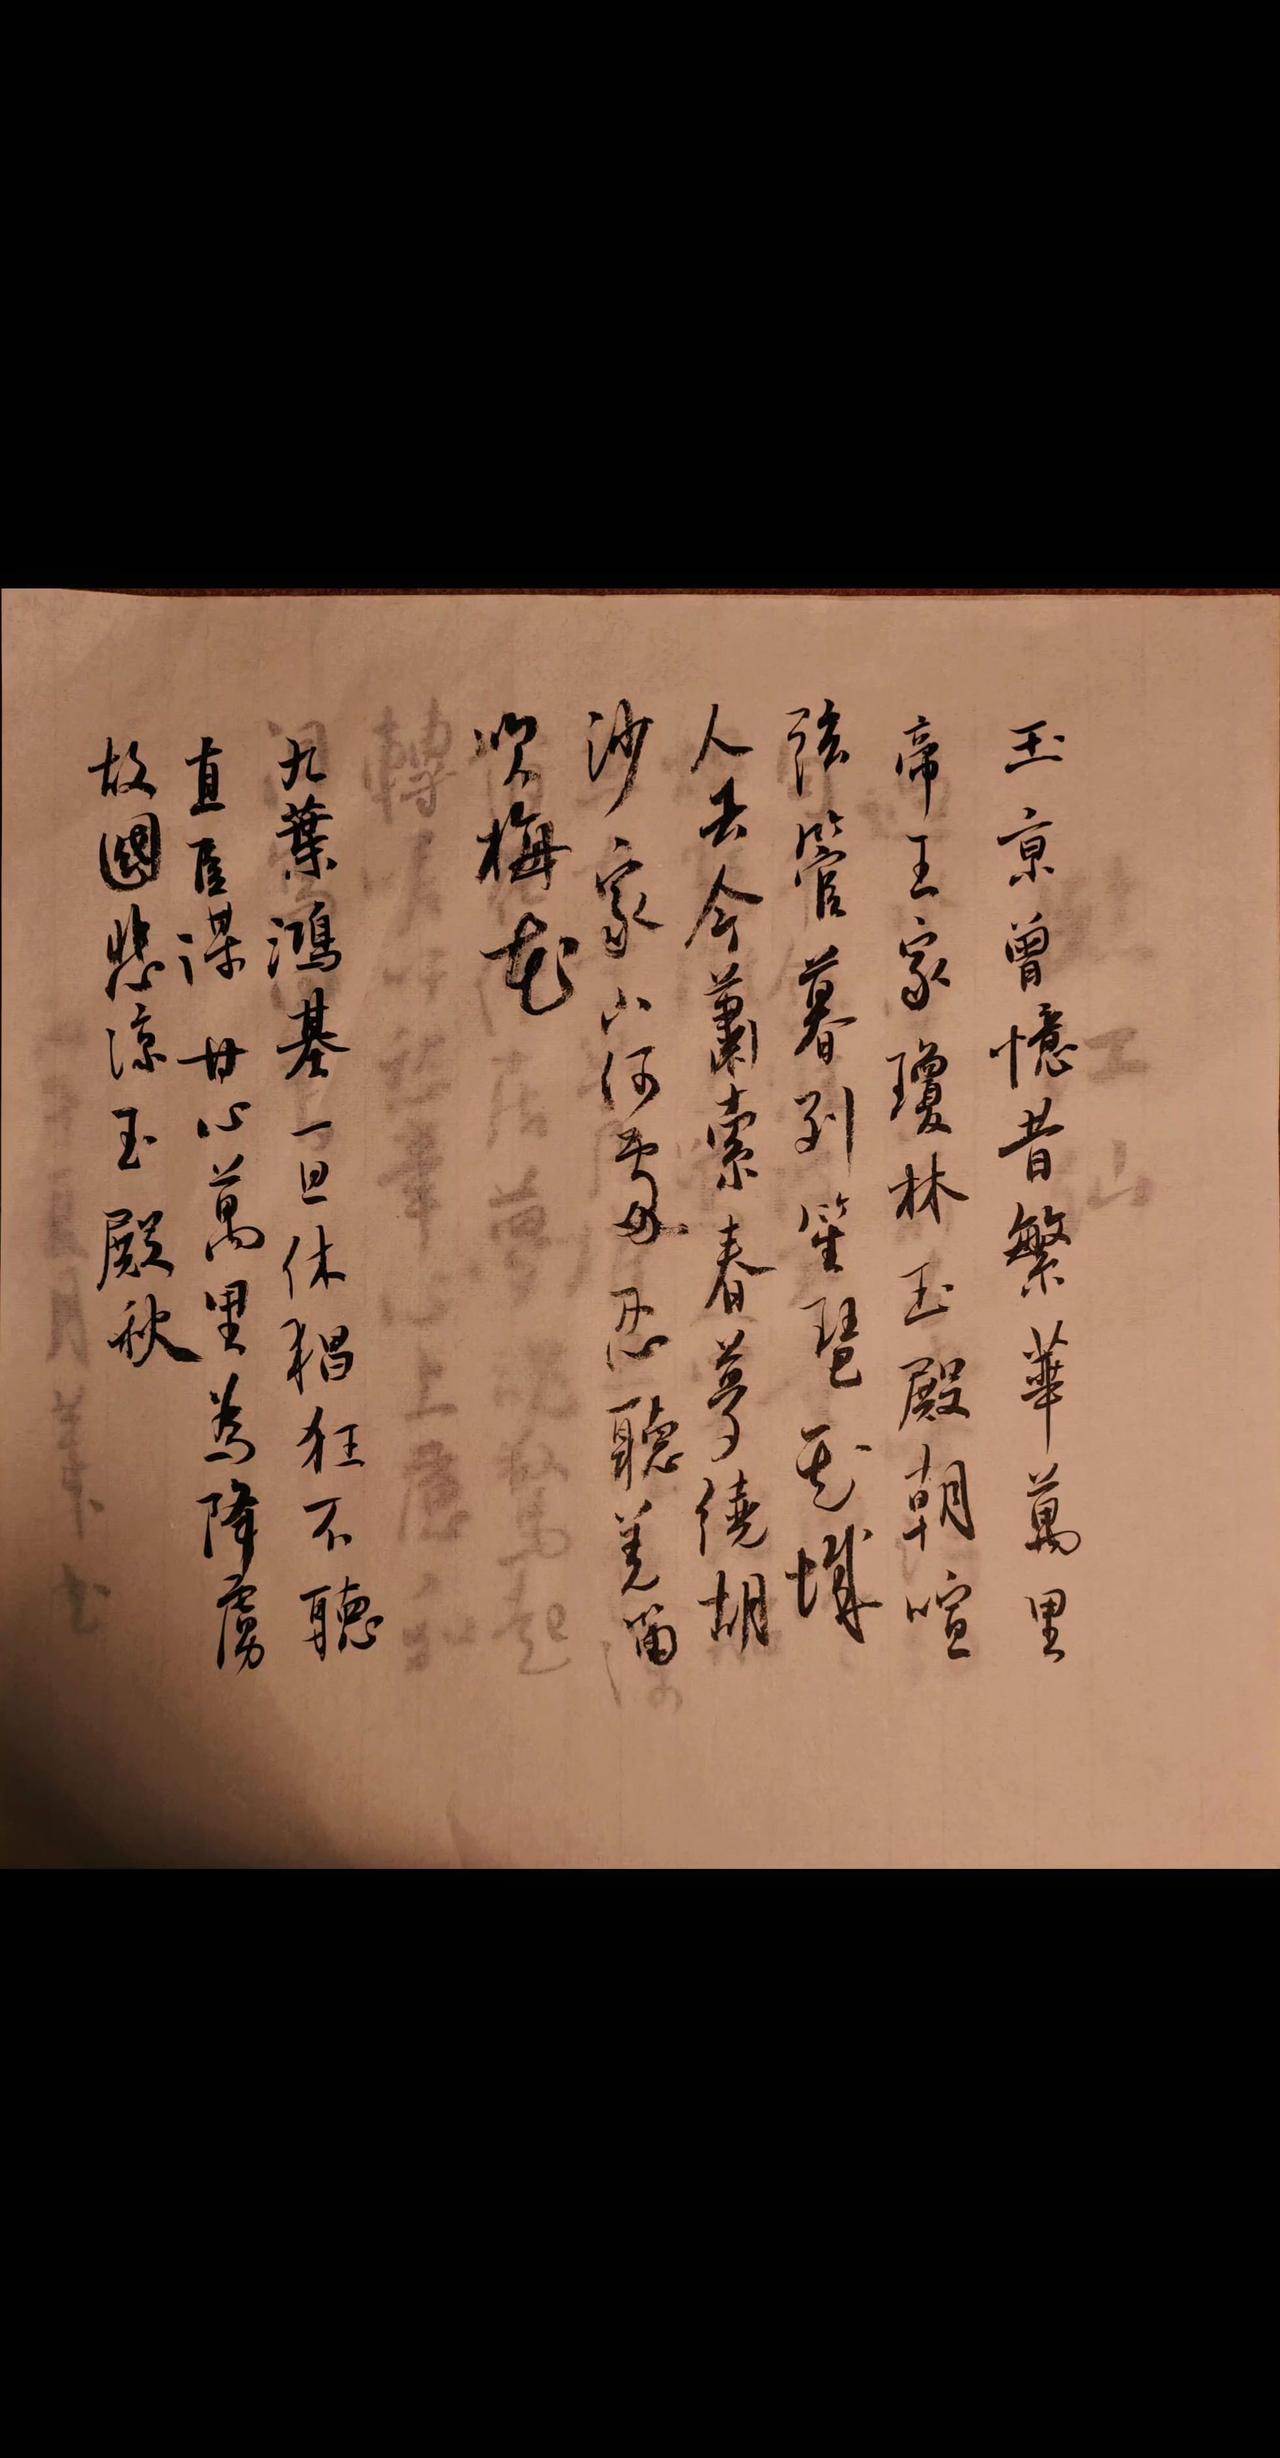 玉京曾憶昔繁華萬里
帝王家瓊林玉殿朝喧
弦管暮列笙琶花城
人去今蕭索春夢繞胡
沙家山何處忍聽羌笛
吹梅花
九葉鴻基一旦休猖狂不聽
直臣謀甘心萬里為降虜
故國悲涼玉殿秋